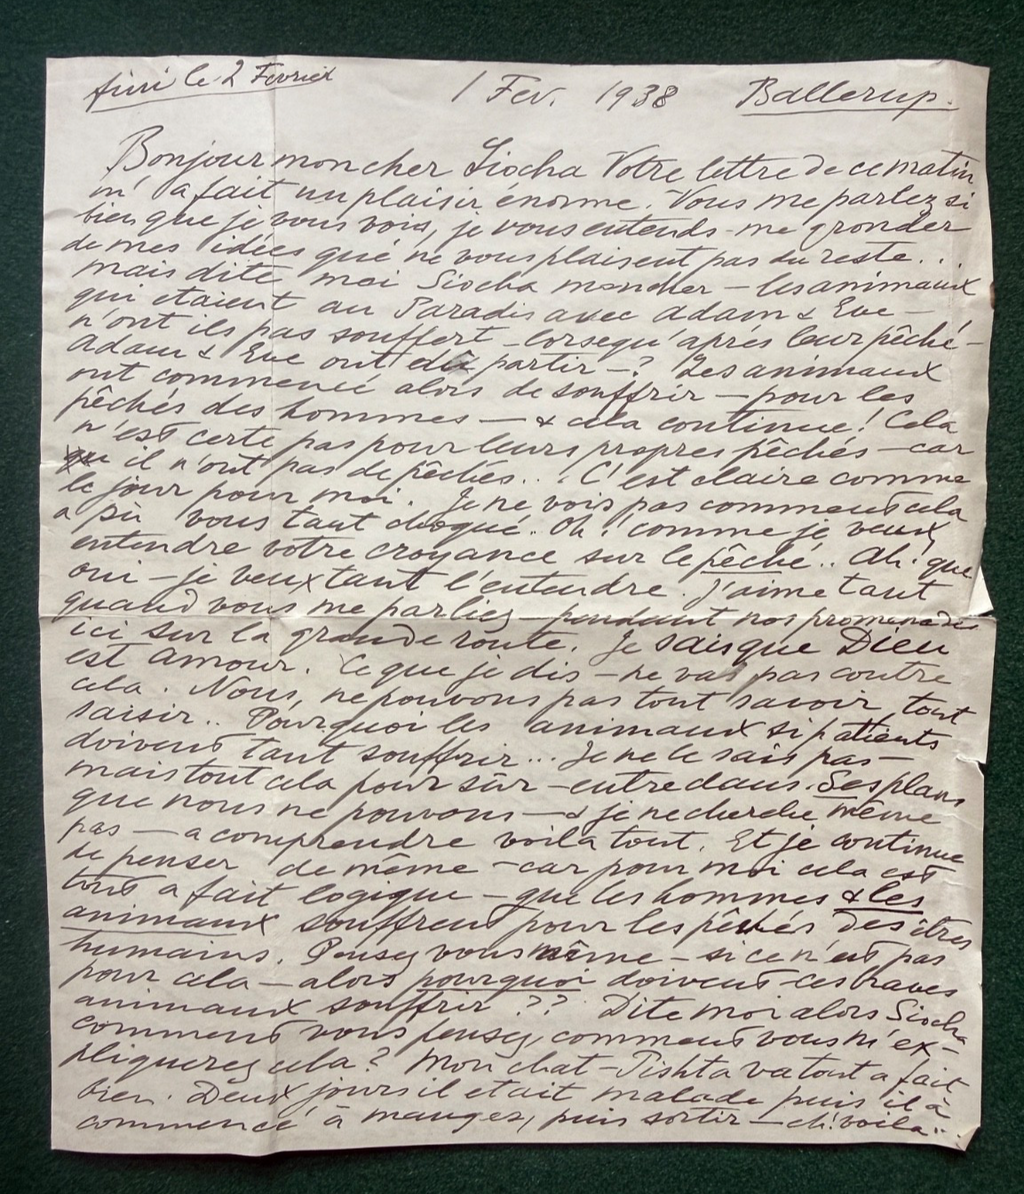 fini le 2 Fevrier
1 Fev. 1938 Ballerup.
Bonjour mon cher Siocha Votre lettre de ce matin
m'a fait un plaisir énorme. Vous me parlez si
bien que je vous vois, je vous entends me gronder
de mes idées qué ne vous plaisent pas du reste..
mais dite moi Siocha moncher – les animaux
qui etaient au Paradis avec Adam & Eve –
n'ont ils pas souffert – lorsequ'aprés leur pêché –
Adam & Eve ont dû partir –? Les animaux
ont commencé alors de souffrir – pour les
pêchés des hommes – & cela continue! Cela
n'est certe pas pour leurs propres pêchés – car
il n'ont pas de pêchés.. C'est claire comme
le jour pour moi. Je ne vois pas comment cela
a pû vous tant choqué. Oh! comme je veux
entendre votre croyance sur le pêché.. Ah! que
oui – je veux tant l'entendre. J'aime tant
quand vous me parliez – pendant nos promenades
ici sur la grande route. Je sais que Dieu
est amour. Ce que je dis – ne va pas contre
cela. Nous, ne pouvons pas tout savoir, tout
saisir.. Pourquoi les animaux si patients
doivent tant souffrir... Je ne le sais pas –
mais tout cela pour sûr – entre dans Ses plans
que nous ne pouvons – & je ne cherche même
pas – a comprendre voila tout. Et je continue
de penser de même – car pour moi cela est
tout a fait logique – que les hommes & les
animaux souffrent pour les pêchés des êtres
humains. Pensez vous même – si ce n'est pas
pour cela – alors pourquoi doivent ces braves
animaux souffrir?? Dite moi alors Siocha
comment vous pensez, comment vous m'ex-
pliquerez cela? Mon chat – Tishta va tout a fait
bien. Deux jours il etait malade puis il à
commencé à manger, puis sortir – & voila..